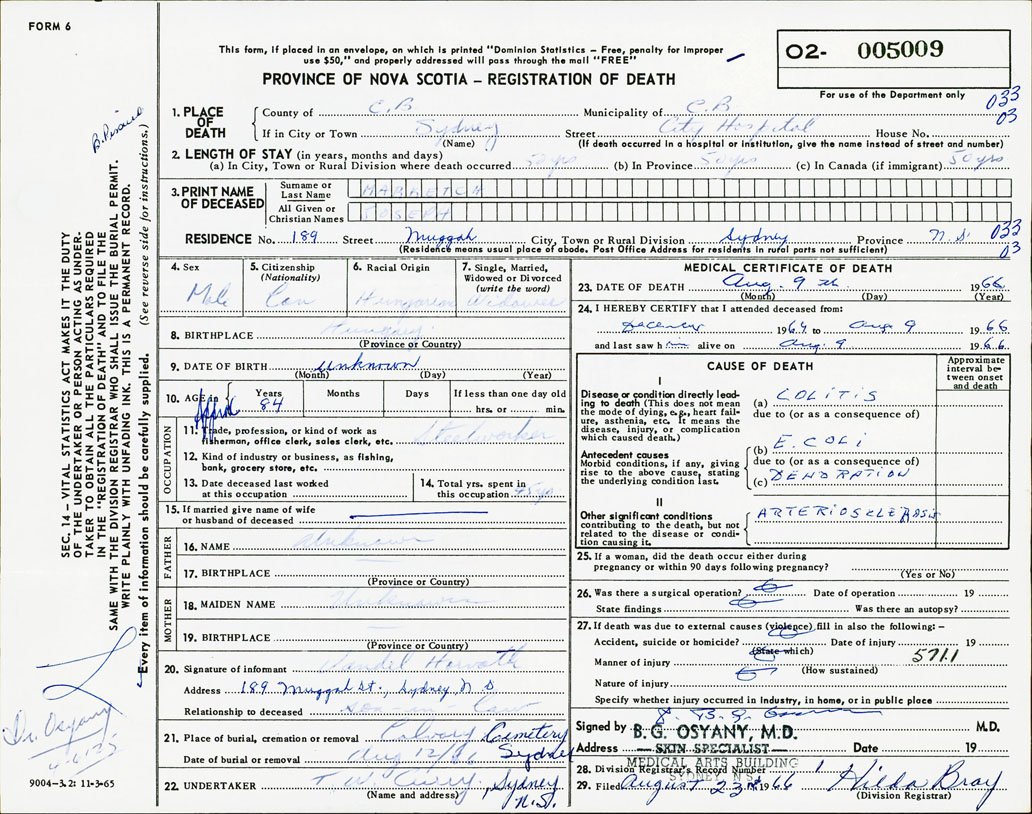 FORM 6
This form, if placed in an envelope, on which is printed "Dominion Statistics – Free, penalty for improper
use $50," and properly addressed will pass through the mail "FREE"
PROVINCE OF NOVA SCOTIA – REGISTRATION OF DEATH
02- 005009
For use of the Department only
033
03
1. PLACE OF DEATH
County of C.B Municipality of C.B
If in City or Town Sydney Street City Hospital House No.
(Name) (If death occurred in a hospital or institution, give the name instead of street and number)
2. LENGTH OF STAY (in years, months and days)
(a) In City, Town or Rural Division where death occurred 50 yrs (b) In Province 50 yrs (c) In Canada (if immigrant) 50 yrs
3. PRINT NAME OF DECEASED
Surname or Last Name
All Given or Christian Names JOSEPH
RESIDENCE No. 189 Street Muggah City, Town or Rural Division Sydney Province N.S. 033
03
(Residence means usual place of abode. Post Office Address for residents in rural parts not sufficient)
4. Sex Male
5. Citizenship (Nationality) Can
6. Racial Origin Hungarian
7. Single, Married, Widowed or Divorced (write the word) Widower
8. BIRTHPLACE Hungary
(Province or Country)
9. DATE OF BIRTH unknown
(Month) (Day) (Year)
10. AGE in Approx Years 84 Months Days If less than one day old
hrs. or min.
OCCUPATION
11. Trade, profession, or kind of work as fisherman, office clerk, sales clerk, etc. Steelworker
12. Kind of industry or business, as fishing, bank, grocery store, etc.
13. Date deceased last worked at this occupation
14. Total yrs. spent in this occupation 45 yrs
15. If married give name of wife or husband of deceased
FATHER
16. NAME Unknown
17. BIRTHPLACE
(Province or Country)
MOTHER
18. MAIDEN NAME Unknown
19. BIRTHPLACE
(Province or Country)
20. Signature of informant Horvath
Address 189 Muggah St., Sydney N S
Relationship to deceased son-in-law
21. Place of burial, cremation or removal Calvary Cemetery
Date of burial or removal Aug 12/66 Sydney
22. UNDERTAKER T. W. Curry, Sydney
(Name and address) N.S.
MEDICAL CERTIFICATE OF DEATH
23. DATE OF DEATH Aug. 9th 1966
(Month) (Day) (Year)
24. I HEREBY CERTIFY that I attended deceased from:
December 1964 to Aug 9 1966
and last saw him alive on Aug. 9 1966
CAUSE OF DEATH
Approximate interval between onset and death
I
Disease or condition directly leading to death (This does not mean the mode of dying, e.g., heart failure, asthenia, etc. It means the disease, injury, or complication which caused death.)
(a) COLITIS
due to (or as a consequence of)
Antecedent causes
Morbid conditions, if any, giving rise to the above cause, stating the underlying condition last.
(b) E. COLI
due to (or as a consequence of)
(c)
II
Other significant conditions contributing to the death, but not related to the disease or condition causing it.
ARTERIOSCLEROSIS
25. If a woman, did the death occur either during
pregnancy or within 90 days following pregnancy?
(Yes or No)
26. Was there a surgical operation? Date of operation 19
State findings Was there an autopsy?
27. If death was due to external causes (violence) fill in also the following: –
Accident, suicide or homicide? Date of injury 19
(State which)
Manner of injury 571.1
(How sustained)
Nature of injury
Specify whether injury occurred in industry, in home, or in public place
Signed by B. G. OSYANY, M.D. M.D.
Address SKIN SPECIALIST Date 19
MEDICAL ARTS BUILDING
28. Division Registrar's Record Number
SYDNEY, N.S.
29. Filed August 23rd 1966 Hilda Bray
(Division Registrar)
SEC. 14 – VITAL STATISTICS ACT MAKES IT THE DUTY
OF THE UNDERTAKER OR PERSON ACTING AS UNDER-
TAKER TO OBTAIN ALL THE PARTICULARS REQUIRED
IN THE "REGISTRATION OF DEATH" AND TO FILE THE
SAME WITH THE DIVISION REGISTRAR WHO SHALL ISSUE THE BURIAL PERMIT.
WRITE PLAINLY WITH UNFADING INK. THIS IS A PERMANENT RECORD.
Every item of information should be carefully supplied. (See reverse side for instructions.)
Dr. Osyany
9004–3.2: 11-3-65